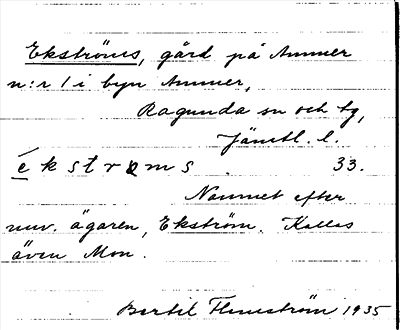 Ekströms, gård på Ammer
n:r 1 i byn Ammer,
Ragunda sn och tg,
Jämtl. l.
é k s t r ø m s . 33.
Namnet efter
nuv. ägaren, Ekström. Kallas
även Mon.
Bertil Flemström 1935